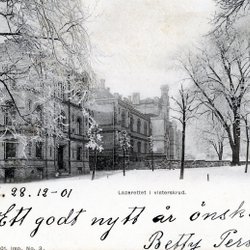 Lazarettet i vinterskrud.
28.12-01
Ett godt nytt år önsk
Betty Pers
Imp. No. 3.